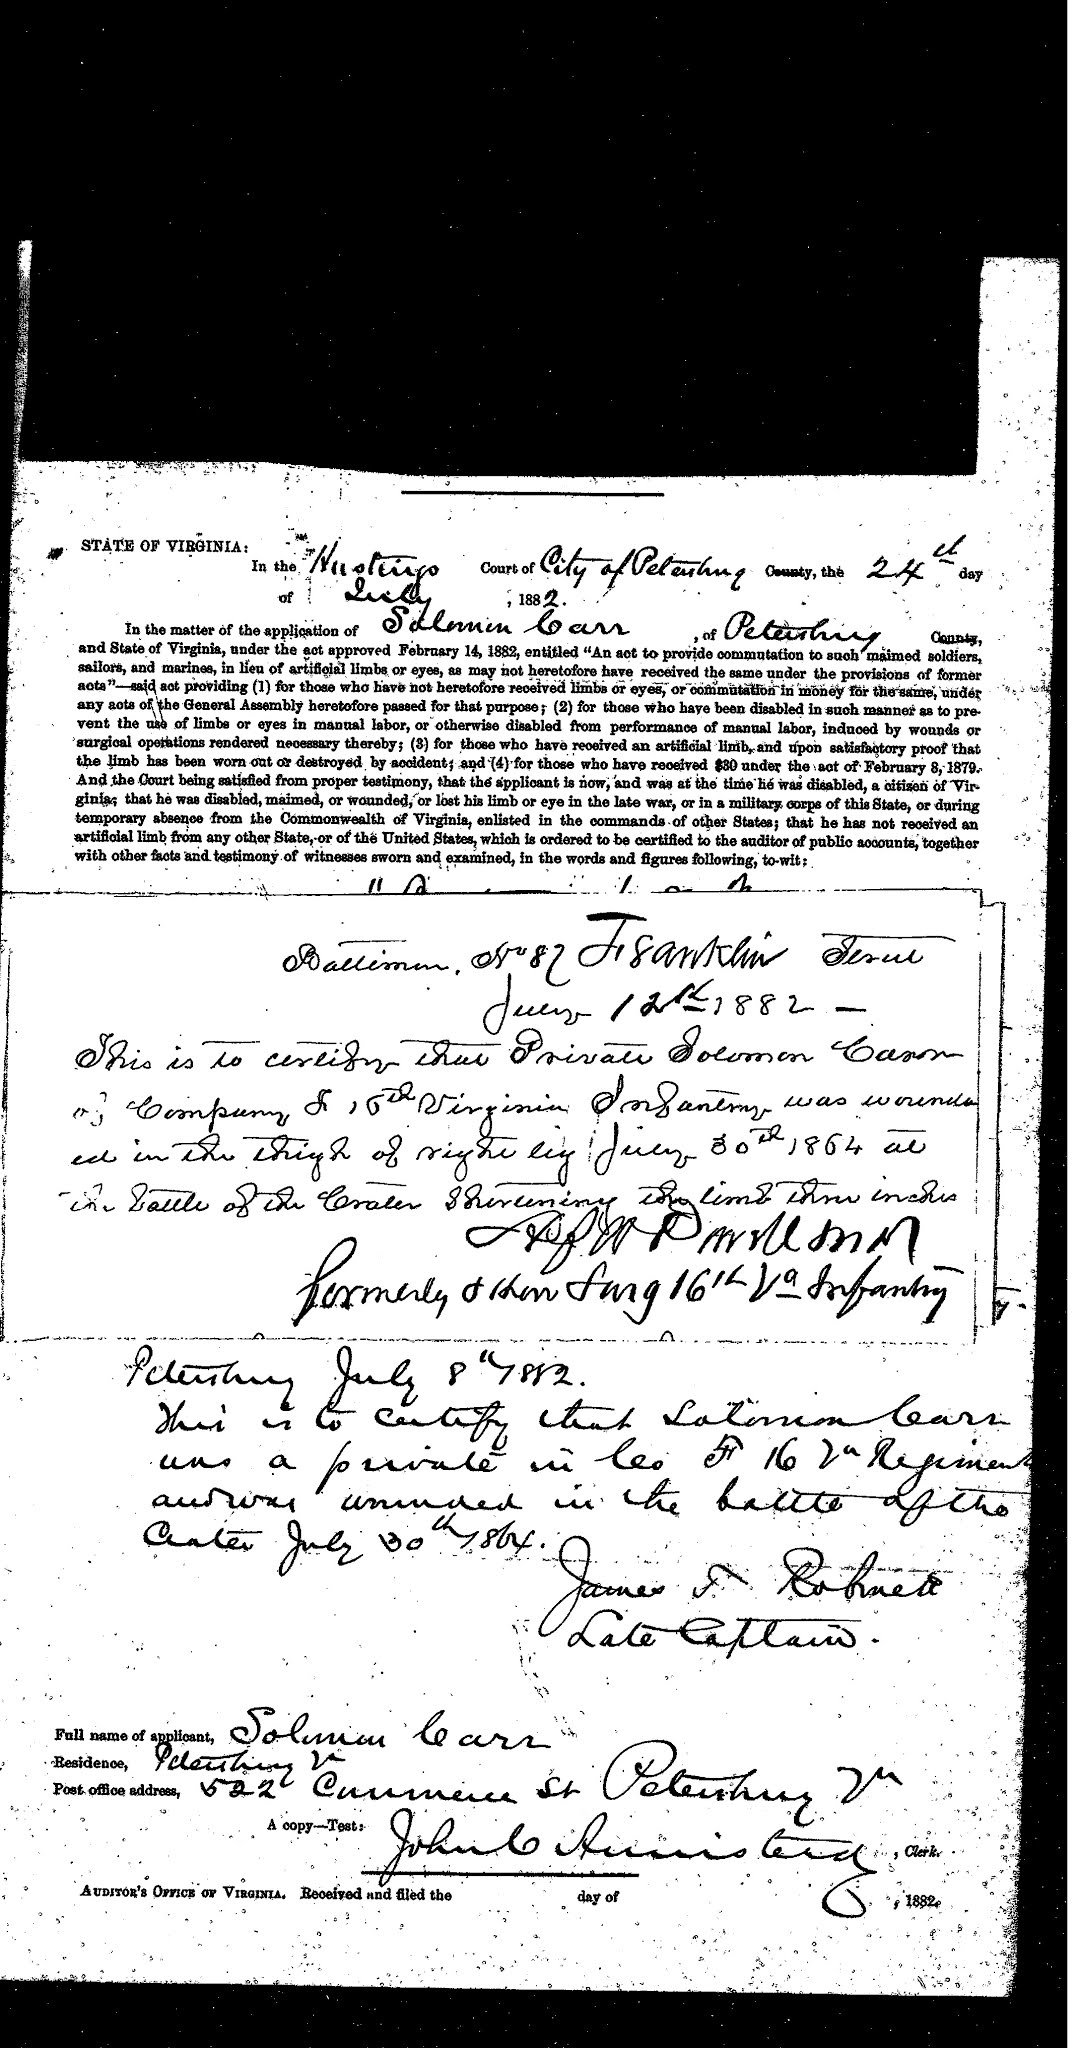 STATE OF VIRGINIA:
In the Hustings Court of City of Petersburg County, the 24th day
of July, 1882.
In the matter of the application of Solomon Carr, of Petersburg County,
and State of Virginia, under the act approved February 14, 1882, entitled "An act to provide commutation to such maimed soldiers,
sailors, and marines, in lieu of artificial limbs or eyes, as may not heretofore have received the same under the provisions of former
acts"—said act providing (1) for those who have not heretofore received limbs or eyes, or commutation in money for the same, under
any acts of the General Assembly heretofore passed for that purpose; (2) for those who have been disabled in such manner as to pre-
vent the use of limbs or eyes in manual labor, or otherwise disabled from performance of manual labor, induced by wounds or
surgical operations rendered necessary thereby; (3) for those who have received an artificial limb, and upon satisfactory proof that
the limb has been worn out or destroyed by accident; and (4) for those who have received $30 under the act of February 8, 1879.
And the Court being satisfied from proper testimony, that the applicant is now, and was at the time he was disabled, a citizen of Vir-
ginia; that he was disabled, maimed, or wounded, or lost his limb or eye in the late war, or in a military corps of this State, or during
temporary absence from the Commonwealth of Virginia, enlisted in the commands of other States; that he has not received an
artificial limb from any other State, or of the United States, which is ordered to be certified to the auditor of public accounts, together
with other facts and testimony of witnesses sworn and examined, in the words and figures following, to-wit:
Baltimore, No 87 Franklin Street
July 12th 1882 —
This is to certify that Private Solomon
of Company F 16th Virginia Infantry was wound
ed in the thigh of right leg July 30th 1864 at
the battle of the Crater shortening the limb three inches
formerly Surg 16th Va Infantry
Petersburg July 8th 1882.
This is to certify that Solomon Carr
was a private in Co F 16 Va Regiment
and was wounded in the battle of the
Crater July 30th 1864.
James F
Late Captain.
Full name of applicant, Solomon Carr
Residence, Petersburg Va
Post office address, 522 Commerce St Petersburg Va
A copy—Test:
John C Armistead, Clerk.
AUDITOR'S OFFICE OF VIRGINIA. Received and filed the day of , 1882.